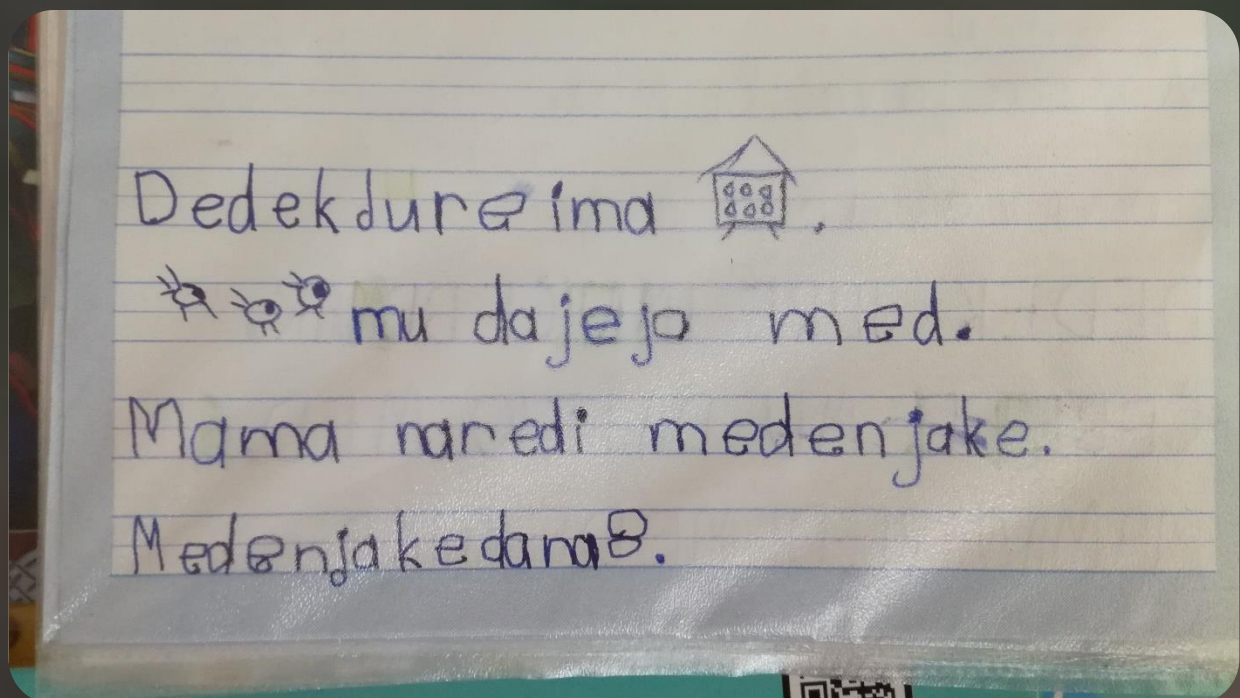 Dedekdureima .
mu dajejo med.
Mama naredi medenjake.
Medenjakedana8.